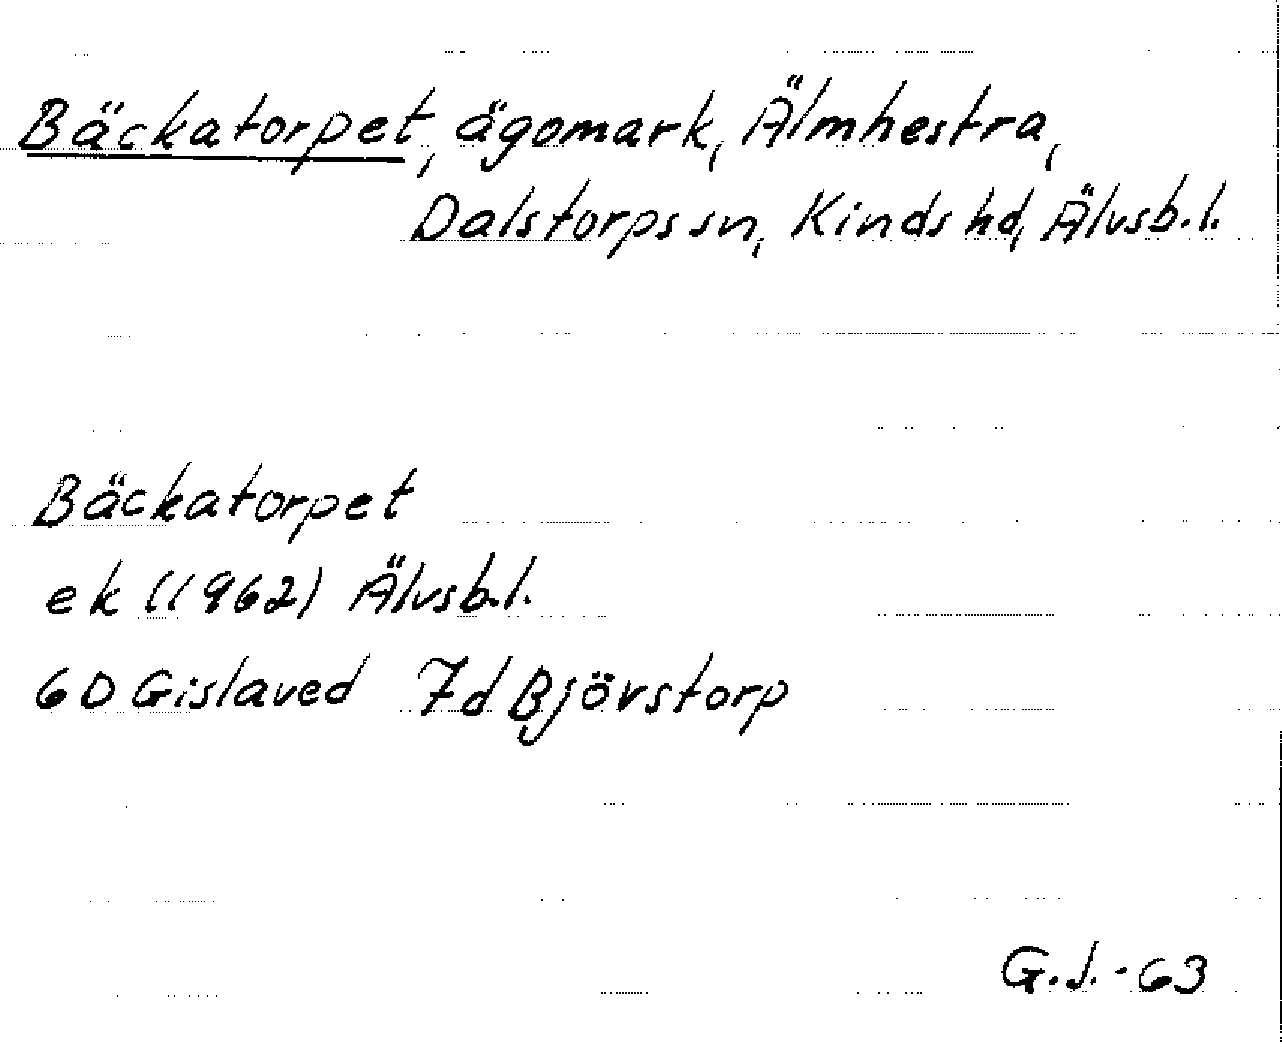 Bäckatorpet, ägomark, Älmhestra,
Dalstorps sn, Kinds hd, Älvsb.l.
Bäckatorpet
ek (1962) Älvsb.l.
6D Gislaved 7d Bjövstorp
G.J.-63